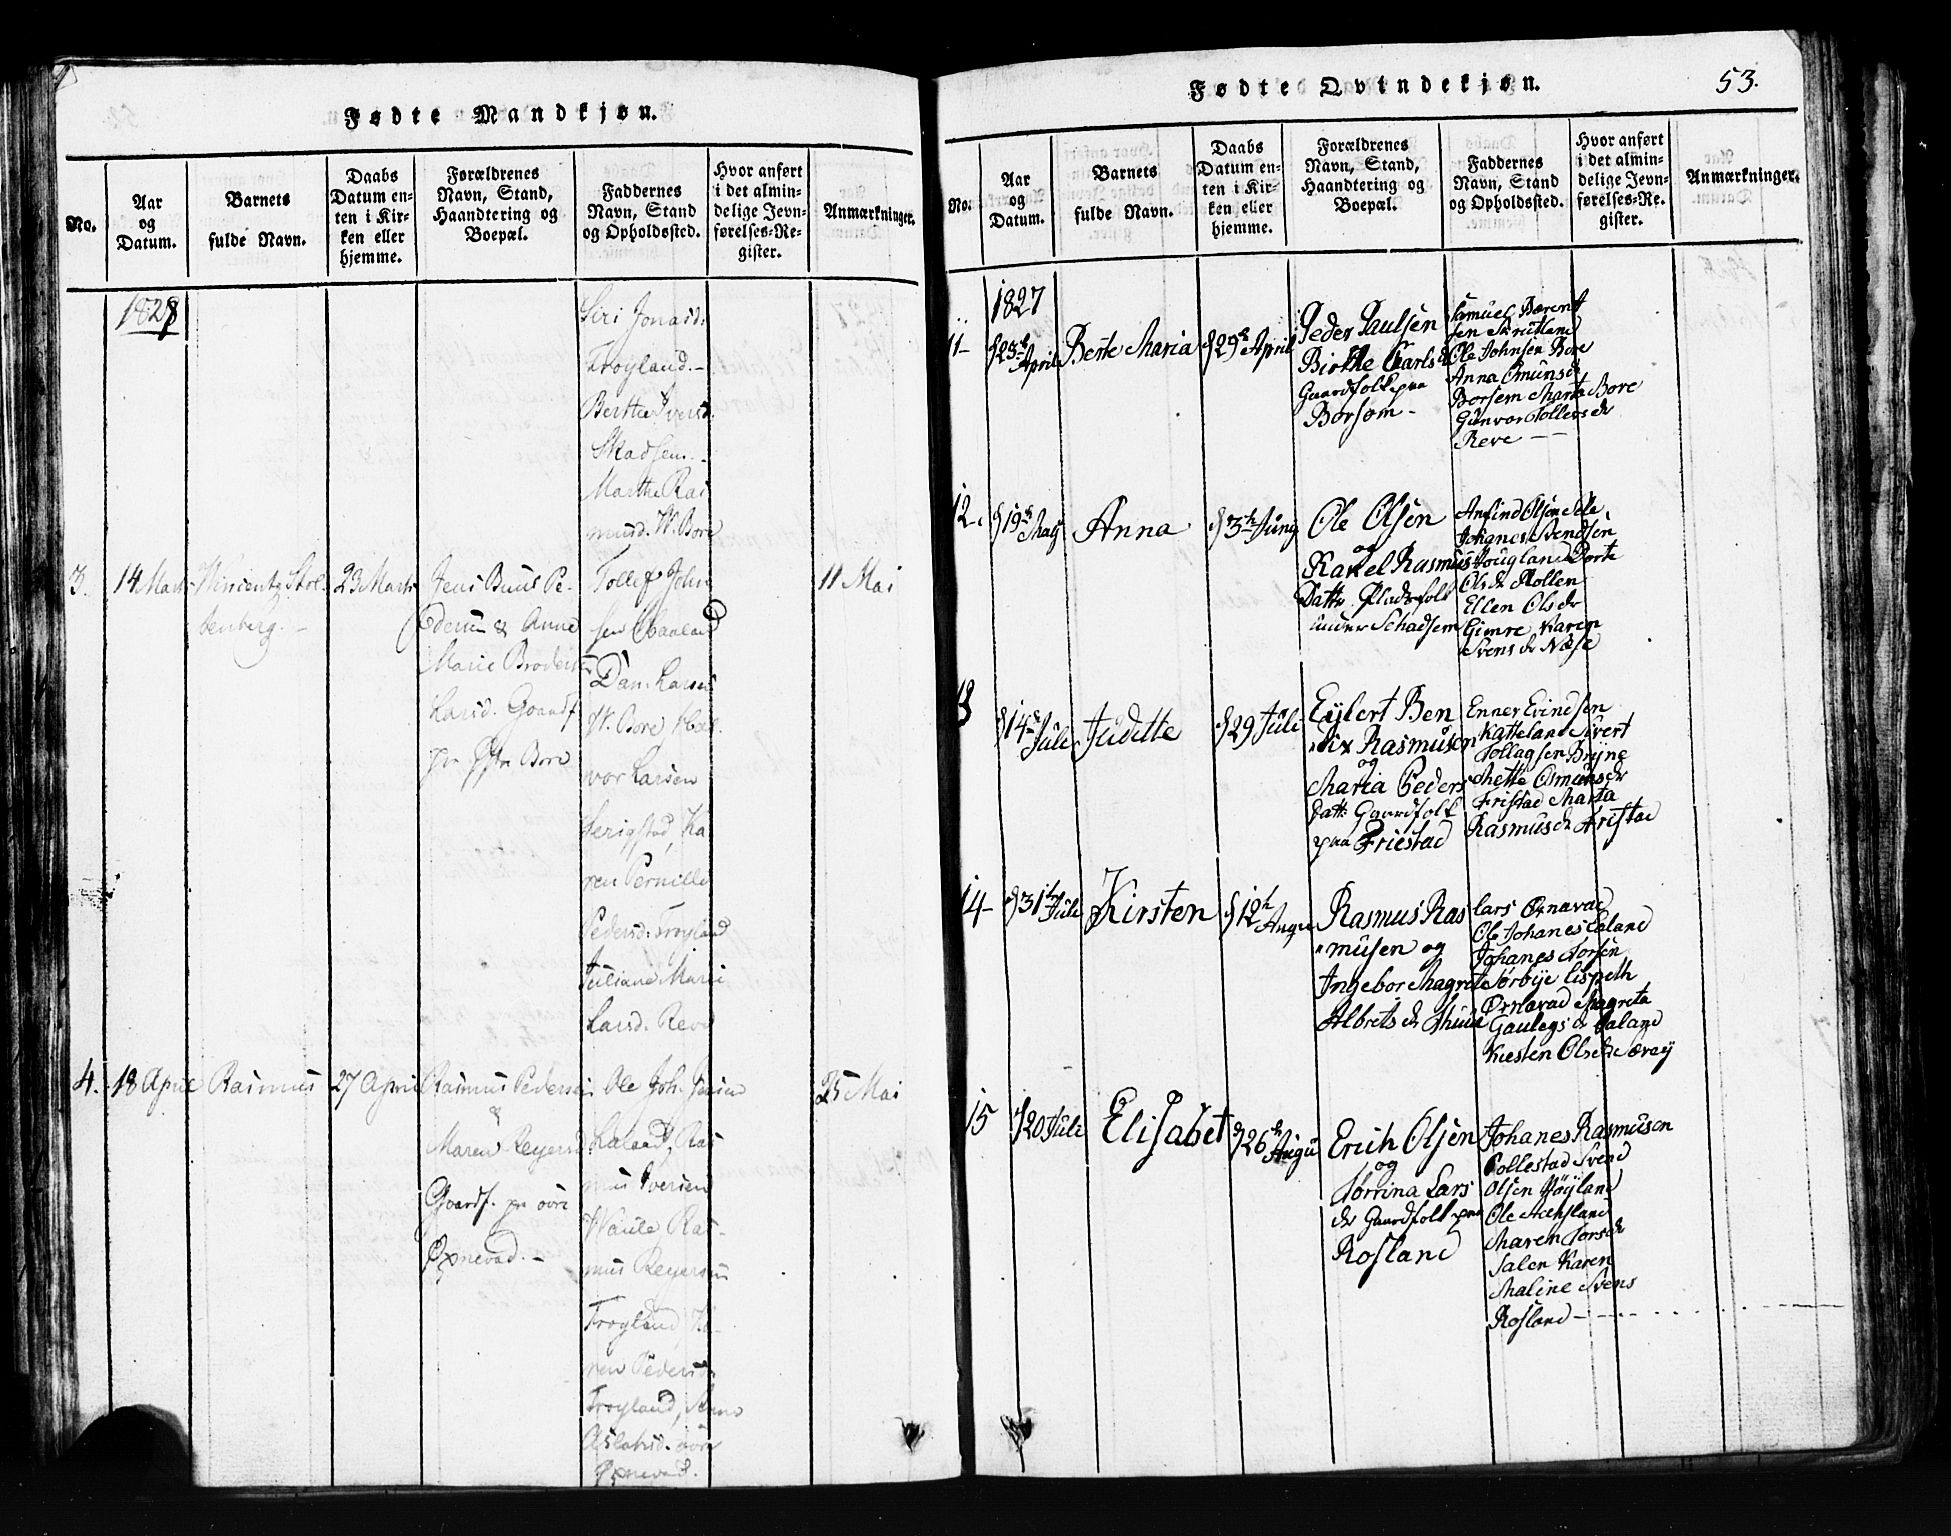 Fødte Mandkjøn.
No.
Aar
og
Datum.
Barnets
fulde Navn.
Daabs
Datum en-
ten i Kir-
ken eller
hjemme.
Forældrenes
Navn, Stand,
Haandtering og
Boepæl.
Faddernes
Navn, Stand
og Opholdssted.
Hvor anført
i det almin-
delige Jevn-
førelses-Re-
gister.
Anmærkninger.
1828
Siri Jonasd.
Troyland.-
Berthe Iversd.
Skadsem.-
Marthe Ras
musd. W. Bore
3.
14 Marts
Stol-
tenberg.-
23 Marts
Jens Buus Pe-
dersen & Anne
Marie Broders
Larsd. Gaardf
Bore
Tollef John
sen
Dan. Larsen
W. Bore Hal-
vor Larsen
Serigstad, Ka
ren Pernille
Pedersd. Troyland
Juliane Marie
Larsd. Reve
11 Mai
4.
18 April
Rasmus
27 April
Rasmus Pedersen
&
Maren Reyersd
Gaardf. pa øvre
Øxnevad.-
Ole Joh. Jensen
Laland, Ras
mus Iversen
Waule Ras-
mus Reyersen
Troyland, Ka-
ren Pedersd.
Troyland, Anna
Aslaksd. øvre
Øxnevad.
25 Mai
Fødte Qvindekjøn.
53.
No.
Aar
og
Datum.
Barnets
fulde Navn.
Daabs
Datum en-
ten i Kir-
ken eller
hjemme.
Forældrenes
Navn, Stand,
Haandtering og
Boepæl.
Faddernes
Navn, Stand
og Opholdssted.
Hvor anført
i det almin-
delige Jevn-
førelses-Re-
gister.
Anmærkninger.
1827
11-
d 23de
April
Berte Maria
d 29de April
Peder Paulsen
Birthe Carlsd
Gaardfolk paa
Borsom-
Samuel Bærent
sen Skrutland
Ole Johnsen Bore
Anna Omunsd
Borsem Marta Bore
Gunvor Tollefs dr
Reve --
12.
d 19de
Maj
Anna
d 3de Juny
Ole Olsen
og
Rakel Rasmus
Datter Pladsfolk
under Schadsem
Anfind Olsen Sele
Johanes Svendsen
Houglan Dorte
Ols dr Mollen
Ellen Ols dr
Gimre Karen
Svens dr Næse
13
d 14de
Juli
Judette
d 29 Juli
Eylert Ben
dix Rasmusen
og
Maria Peders
datt. Gaardfolk
paa Friestad
Enner Evindsen
Katteland Sivert
Tollagsen Bryne
Mette Omuns dr
Fristad Marta
Rasmus dr Fristad
14-
d 31te Juli
Kirsten
d 12te
August
Rasmus Ras
musen og
Ingebor Magrete
Albrets dr
Lars Øxnavad
Ole Johanes Laland
Johanes Torsen
Sørbye Lispeth
Øxnavad Magreta
Gaulegs dr Laland
Kiesten Ols dr Særey
15
d 20 Juli
Elisabet
d 26de
Augu
Erich Olsen
og
Torrina Lars
dr Gaardfolk paa
Rosland
Johanes Rasmusen
Pollestad Svend
Olsen Høyland
Ole
Maren Tors dr
Salen Karen
Maline Svens
Rosland -